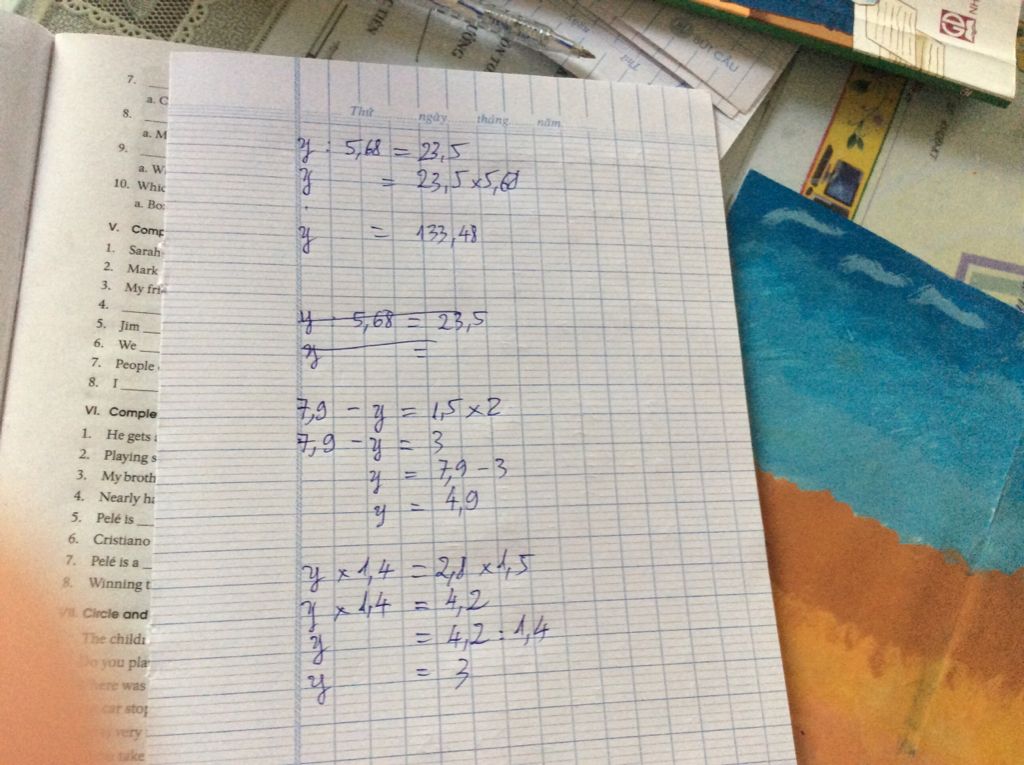 7.
a. C
8.
a. M
9.
a. W
10. Whic
a. Bo
V. Comp
1. Sarah
2. Mark
3. My frie
4.
5. Jim
6. We
7. People
8. I
VI. Comple
1. He gets
2. Playing s
3. My broth
4. Nearly ha
5. Pelé is
6. Cristiano
7. Pelé is a
8. Winning t
VII. Circle and
The childr
Do you pla
here was
car stop
very
take
Thứ ngày tháng năm
y : 5,68 = 23,5
y = 23,5 × 5,68
y = 133,48
y : 5,68 = 23,5
y =
7,9 - y = 1,5 × 2
7,9 - y = 3
y = 7,9 - 3
y = 4,9
y × 1,4 = 2,8 × 1,5
y × 1,4 = 4,2
y = 4,2 : 1,4
y = 3
BÚT CẦU
GD
NH